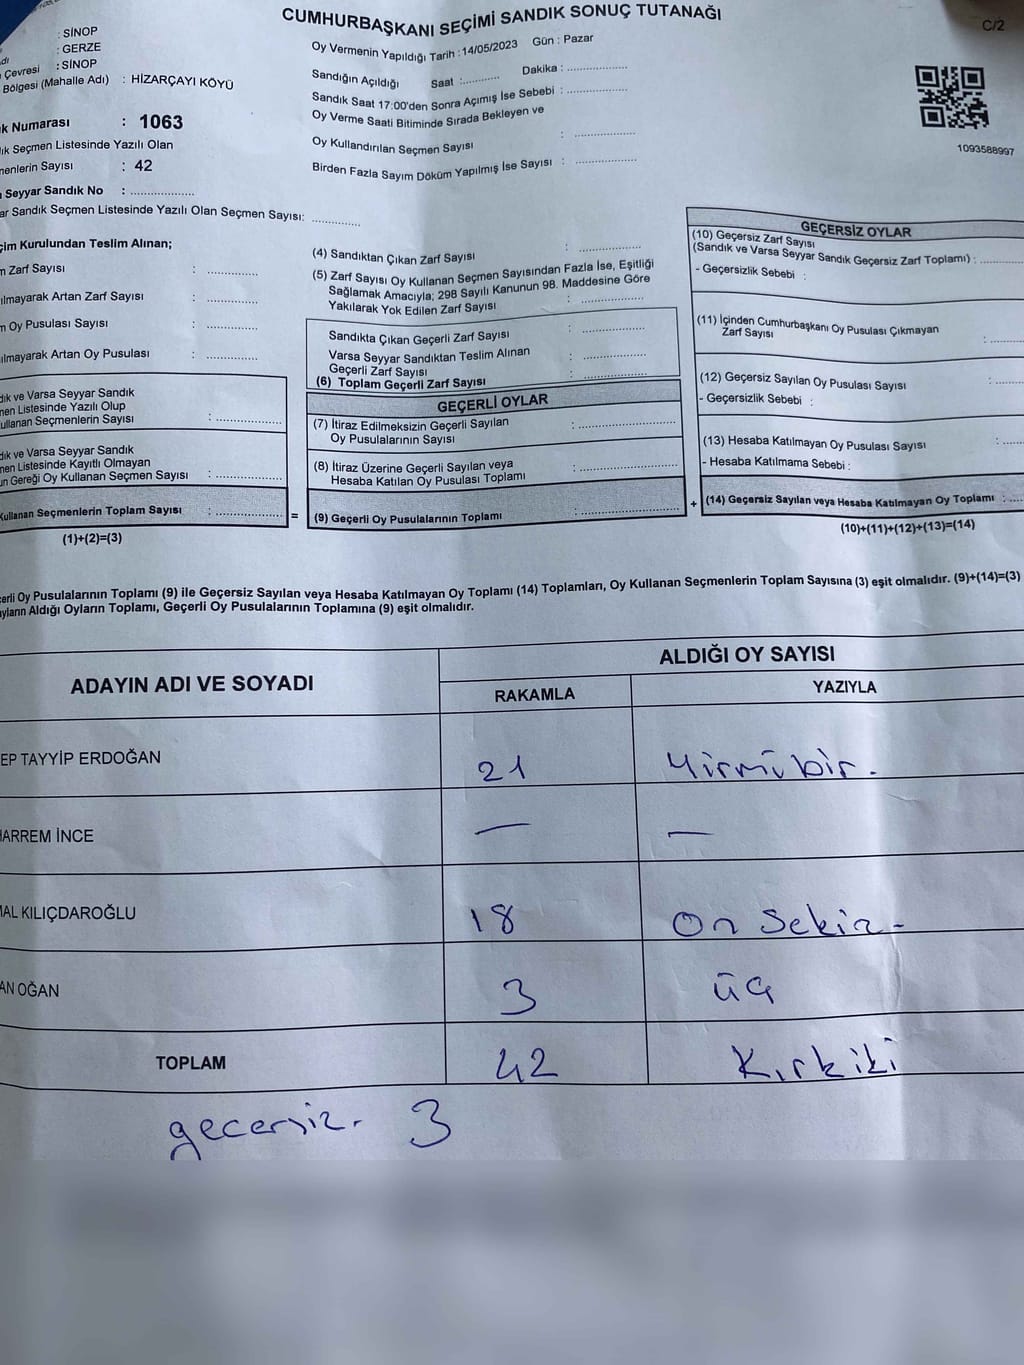 CUMHURBAŞKANI SEÇİMİ SANDIK SONUÇ TUTANAĞI
C/2
: SİNOP
: GERZE
Çevresi : SİNOP
Bölgesi (Mahalle Adı) : HİZARÇAYI KÖYÜ
Numarası : 1063
Seçmen Listesinde Yazılı Olan
Sayısı : 42
Seyyar Sandık No : ....................
Sandık Seçmen Listesinde Yazılı Olan Seçmen Sayısı: ..............
Oy Vermenin Yapıldığı Tarih : 14/05/2023 Gün : Pazar
Sandığın Açıldığı Saat :........... Dakika : ..................
Sandık Saat 17:00'den Sonra Açımış İse Sebebi : ..................
Oy Verme Saati Bitiminde Sırada Bekleyen ve
Oy Kullandırılan Seçmen Sayısı : ..................
Birden Fazla Sayım Döküm Yapılmış İse Sayısı : ..................
1093588997
Kurulundan Teslim Alınan;
Zarf Sayısı : ...............
Artan Zarf Sayısı : ...............
Oy Pusulası Sayısı : ...............
Artan Oy Pusulası : ...............
ve Varsa Seyyar Sandık
Listesinde Yazılı Olup
Seçmenlerin Sayısı : ....................
ve Varsa Seyyar Sandık
Listesinde Kayıtlı Olmayan
Gereği Oy Kullanan Seçmen Sayısı : ....................
Kullanan Seçmenlerin Toplam Sayısı : .................... =
(1)+(2)=(3)
(4) Sandıktan Çıkan Zarf Sayısı : ..................
(5) Zarf Sayısı Oy Kullanan Seçmen Sayısından Fazla İse, Eşitliği
Sağlamak Amacıyla; 298 Sayılı Kanunun 98. Maddesine Göre
Yakılarak Yok Edilen Zarf Sayısı : ..................
Sandıkta Çıkan Geçerli Zarf Sayısı : ..................
Varsa Seyyar Sandıktan Teslim Alınan
Geçerli Zarf Sayısı : ..................
(6) Toplam Geçerli Zarf Sayısı : ..................
GEÇERLİ OYLAR
(7) İtiraz Edilmeksizin Geçerli Sayılan
Oy Pusulalarının Sayısı : ..................
(8) İtiraz Üzerine Geçerli Sayılan veya
Hesaba Katılan Oy Pusulası Toplamı : ..................
(9) Geçerli Oy Pusulalarının Toplamı : .................. +
GEÇERSİZ OYLAR
(10) Geçersiz Zarf Sayısı
(Sandık ve Varsa Seyyar Sandık Geçersiz Zarf Toplamı) : ..........
- Geçersizlik Sebebi :
(11) İçinden Cumhurbaşkanı Oy Pusulası Çıkmayan
Zarf Sayısı : ..........
(12) Geçersiz Sayılan Oy Pusulası Sayısı : ..........
- Geçersizlik Sebebi :
(13) Hesaba Katılmayan Oy Pusulası Sayısı : ..........
- Hesaba Katılmama Sebebi :
(14) Geçersiz Sayılan veya Hesaba Katılmayan Oy Toplamı : ....
(10)+(11)+(12)+(13)=(14)
Oy Pusulalarının Toplamı (9) ile Geçersiz Sayılan veya Hesaba Katılmayan Oy Toplamı (14) Toplamları, Oy Kullanan Seçmenlerin Toplam Sayısına (3) eşit olmalıdır. (9)+(14)=(3)
Aldığı Oyların Toplamı, Geçerli Oy Pusulalarının Toplamına (9) eşit olmalıdır.
ADAYIN ADI VE SOYADI
ALDIĞI OY SAYISI
RAKAMLA YAZIYLA
EP TAYYİP ERDOĞAN 21 Yirmi bir.
ARREM İNCE — —
AL KILIÇDAROĞLU 18 On Sekiz -
AN OĞAN 3 üç
TOPLAM 42 Kırkiki
geçersiz. 3